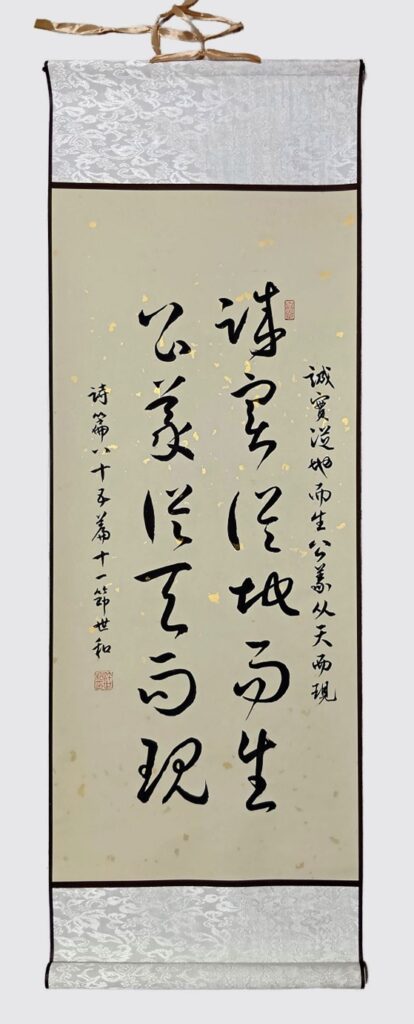 誠實從地而生公義从天而現
誠實從地而生
公義從天而現
詩篇八十五篇十一節世和